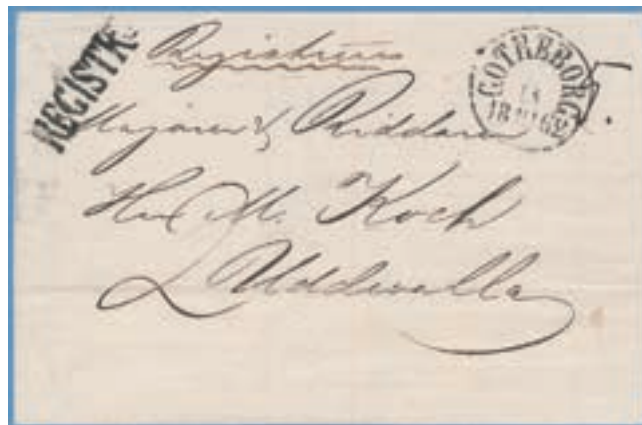 REGISTR.
Registreras
GÖTHEBORG
18 62
Majoren & Riddaren
Herr M. Koch
Uddewalla